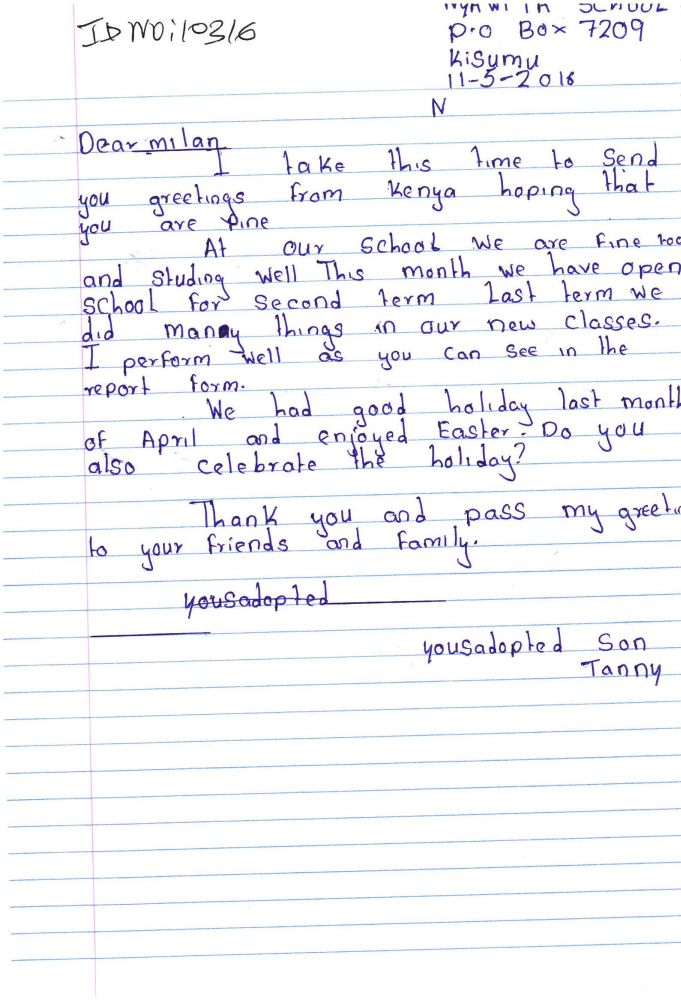 ID NO:10316
SCHOOL
P.O Box 7209
Kisumu
11-5-2016
N
Dear milan
I take this time to Send
you greetings from Kenya hoping that
you are fine
At our School We are Fine too
and studing well This month we have open
School for Second term Last term we
did manay things in our new classes.
I perform well as you can see in the
report form.
We had good holiday last month
of April and enjoyed Easter. Do you
also celebrate the holiday?
Thank you and pass my greeti
to your friends and family.
yousadopted
yousadopted Son
Tanny